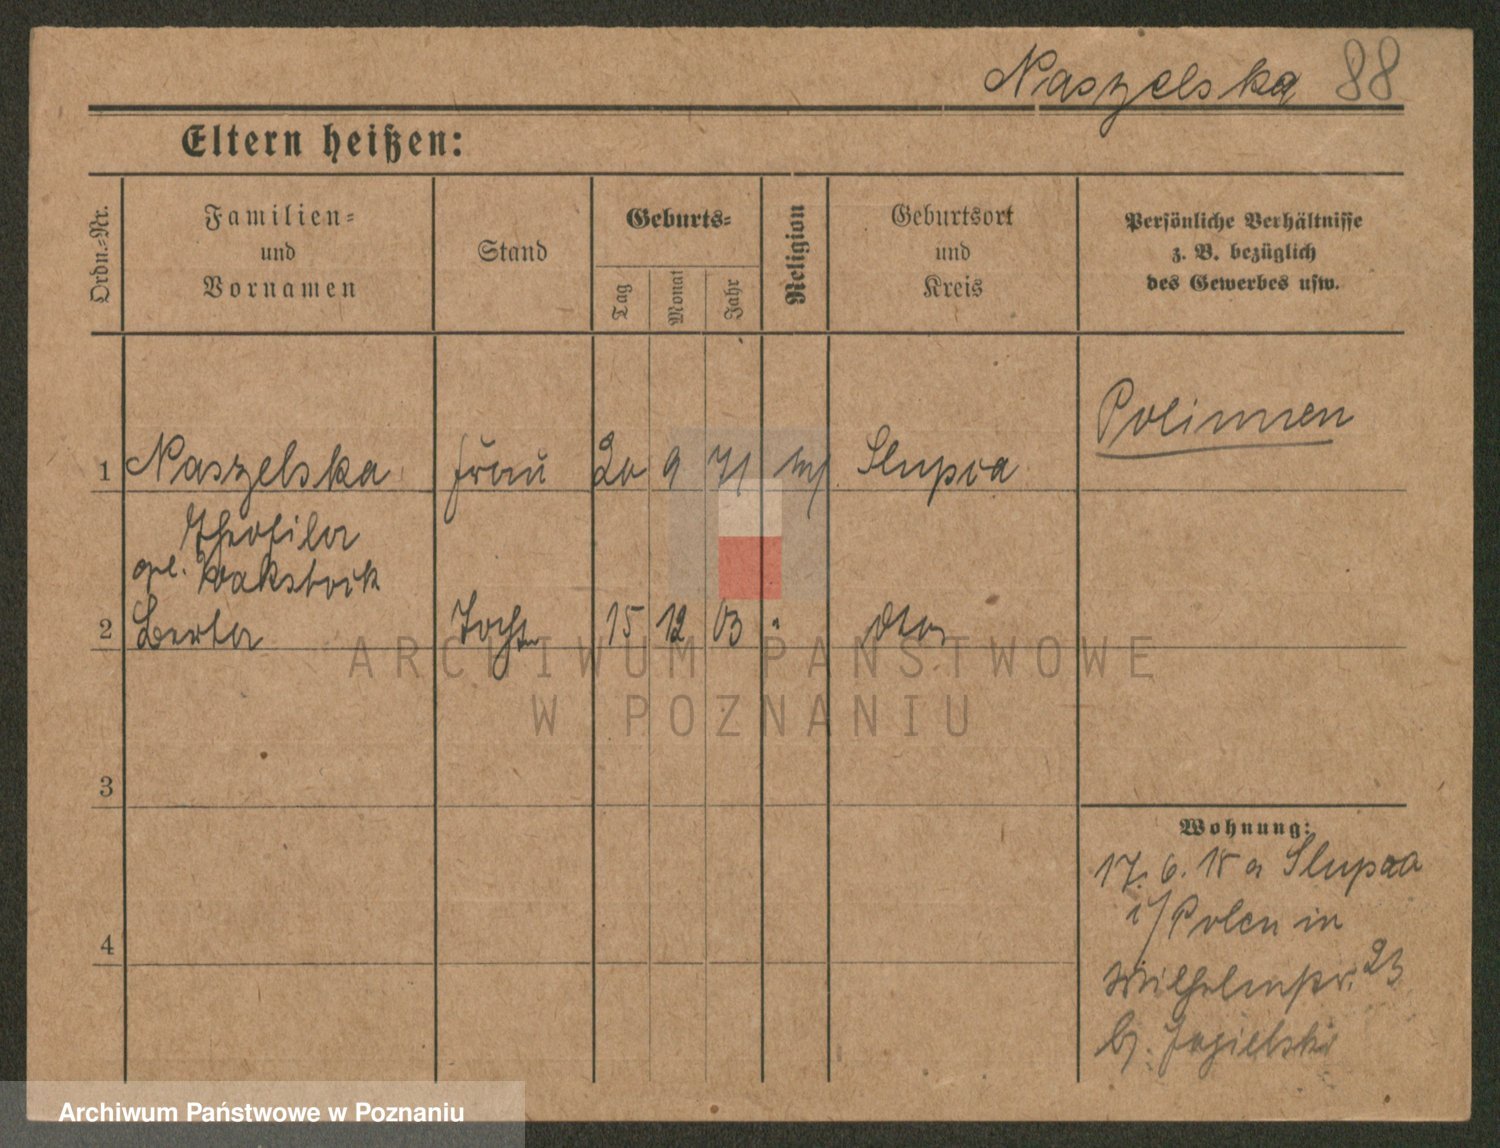 Naszelska 88
Eltern heißen:
Ordn.-Nr.
Familien-
und
Vornamen
Stand
Geburts-
Tag
Monat
Jahr
Religion
Geburtsort
und
Kreis
Persönliche Verhältnisse
z. B. bezüglich
des Gewerbes usw.
Polinnen
1 Naszelska Frau 20 9 71 Slupca
Theofila
Wakstock
2 Berta Tochter 15 12 03 "
3
4
Wohnung:
17. 6. 18 a Slupca
i/Polen in
Wilhelmstr. 23
b/. Jagielski
ARCHIWUM PAŃSTWOWE
W POZNANIU
Archiwum Państwowe w Poznaniu